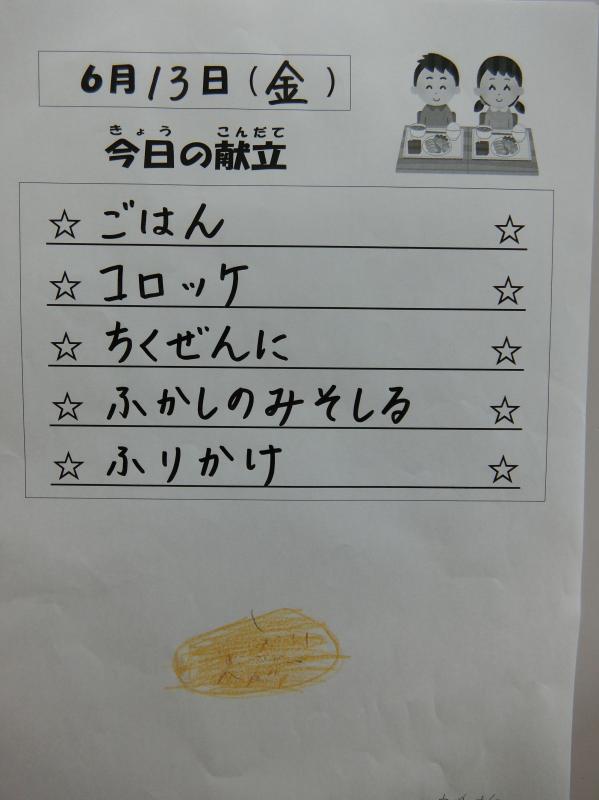 6月13日(金)
きょう こんだて
今日の献立
☆ ごはん ☆
☆ コロッケ ☆
☆ ちくぜんに ☆
☆ ふかしのみそしる ☆
☆ ふりかけ ☆